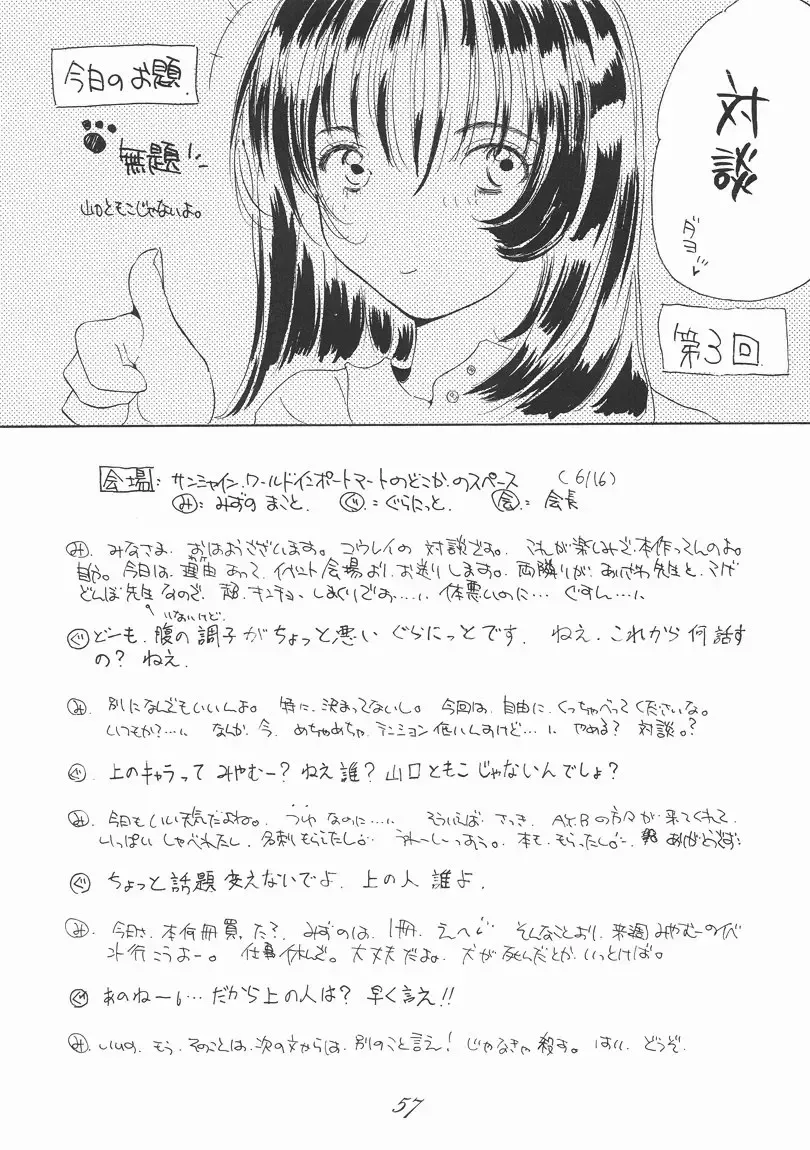 対談
ダヨ♥
今日のお題.
無題!
山口ともこじゃないよ。
第3回
会場: サンシャイン.ワールドインポートマートのどこか.のスペース (6/16)
み: みずの まこと. ぐ: ぐらにっと. 会: 会長
み. みなさま. おはおうございます。コウレイの 対談ですよ。これが楽しみで本作ってんのよ。
自分。今日は. 理由 あって. イベント会場より. お送りします。両隣りが. 先生と.
どんぼ先生なので. 超. キンチョーしまくりでお…. 体悪いのに… ぐすん….
いないけど.
ぐ どーも. 腹の調子がちょっと悪い ぐらにっとです. ねえ. これから 何話す
の? ねえ.
み. 別になんでもいいんよ。特に. 決まってないし。今回は. 自由に. くっちゃべってくださいな。
いつもか?…. なんか. 今. めちゃめちゃ. テンション 低いんすけど…. やめる? 対談。?
ぐ. 上のキャラって みやむー? ねえ 誰? 山口ともこじゃないんでしょ?
み. 今日もいい天気だよね。つゆ なのに…. そういえば. さっき. の方々が 来てくれて.
いっぱい しゃべれたし. 名刺もらえたし. うれーしーっすう。本も. もらったし.
ぐ ちょっと 話題 変えないでよ. 上の人 誰よ.
み. 今日さ. 本何冊買った?. みずのは. 1冊. えへ そんなことより. 来週 みやむーのイベ
ント行こうよー。仕事休んで。大丈夫だよ。犬が 死んだとか. いっとけば。
ぐ あのねー… だから上の人は? 早く言え!!
み. いいの. もう. そのことは. 次の文からは. 別のこと言え! じゃなきゃ 殺す。はい. どうぞ.
57